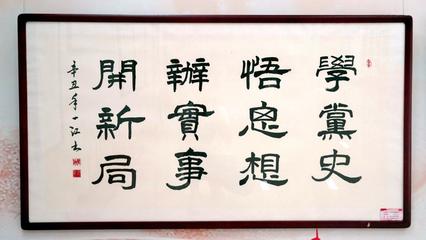 學黨史
悟思想
辦實事
開新局
辛丑年一江书